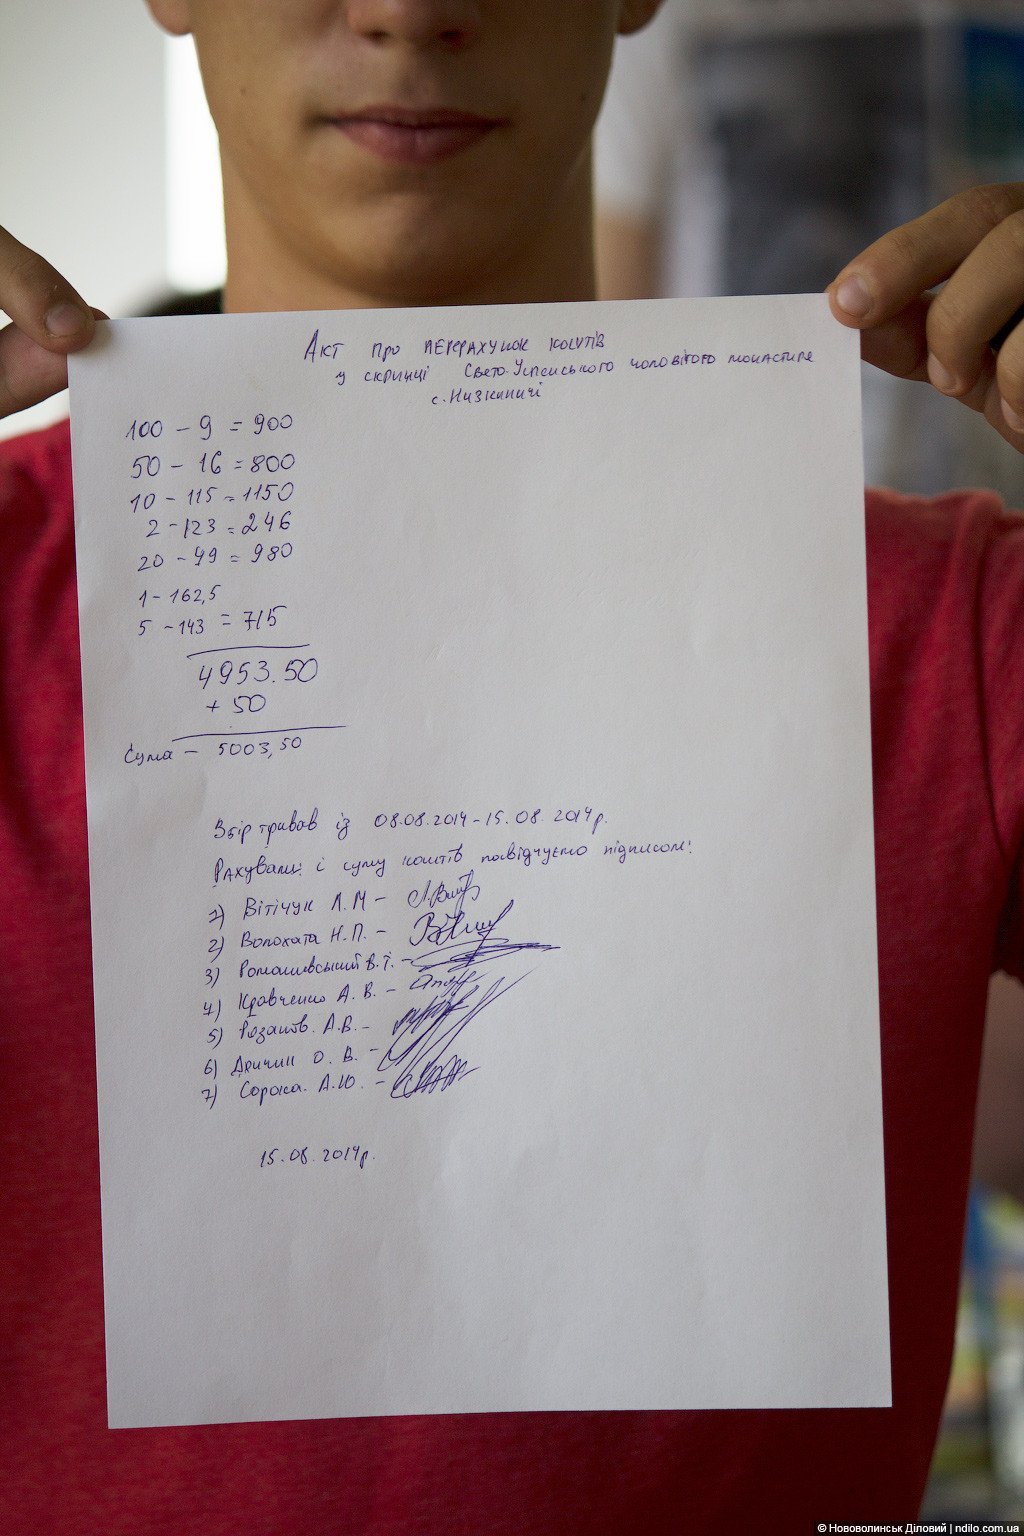 Акт про перерахунок коштів
у скриньці Свето-Успенського чоловічого монастиря
с. Низкиничі
100 - 9 = 900
50 - 16 = 800
10 - 115 = 1150
2 - 123 = 246
20 - 49 = 980
1 - 162,5
5 - 143 = 715
4953.50
+ 50
Сума - 5003,50
Збір тривав із 08.08.2014 - 15.08.2014р.
Рахували і суму коштів посвідчуємо підписом:
1) Вітічук Л.М -
2) Волохата Н.П. -
3) Ромашевський В.І. -
4) Кравченко А.В. -
5) Розанов. А.В. -
6) О.В. -
7) Сорока. А.Ю. -
15.08.2014р.
© Нововолинськ Діловий | ndilo.com.ua